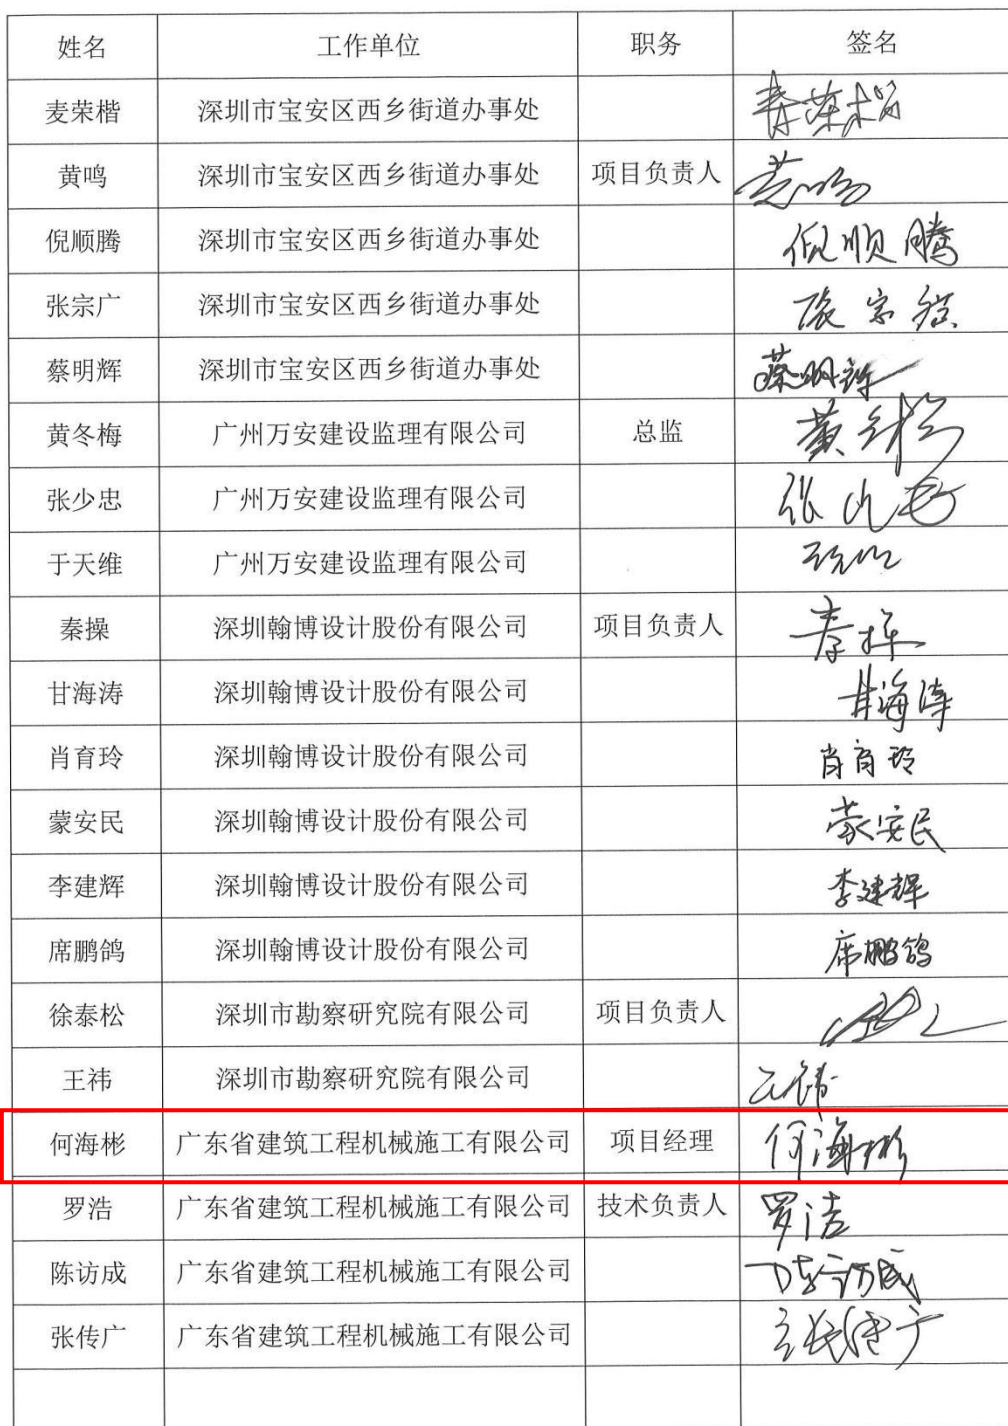 姓名 工作单位 职务 签名
麦荣楷 深圳市宝安区西乡街道办事处 麦荣楷
黄鸣 深圳市宝安区西乡街道办事处 项目负责人 黄鸣
倪顺腾 深圳市宝安区西乡街道办事处 倪顺腾
张宗广 深圳市宝安区西乡街道办事处
蔡明辉 深圳市宝安区西乡街道办事处 蔡明辉
黄冬梅 广州万安建设监理有限公司 总监 黄冬梅
张少忠 广州万安建设监理有限公司
于天维 广州万安建设监理有限公司
秦操 深圳翰博设计股份有限公司 项目负责人 秦操
甘海涛 深圳翰博设计股份有限公司 甘海涛
肖育玲 深圳翰博设计股份有限公司 肖育玲
蒙安民 深圳翰博设计股份有限公司 蒙安民
李建辉 深圳翰博设计股份有限公司 李建辉
席鹏鸽 深圳翰博设计股份有限公司 席鹏鸽
徐泰松 深圳市勘察研究院有限公司 项目负责人
王祎 深圳市勘察研究院有限公司
何海彬 广东省建筑工程机械施工有限公司 项目经理 何海彬
罗浩 广东省建筑工程机械施工有限公司 技术负责人 罗浩
陈访成 广东省建筑工程机械施工有限公司 陈访成
张传广 广东省建筑工程机械施工有限公司